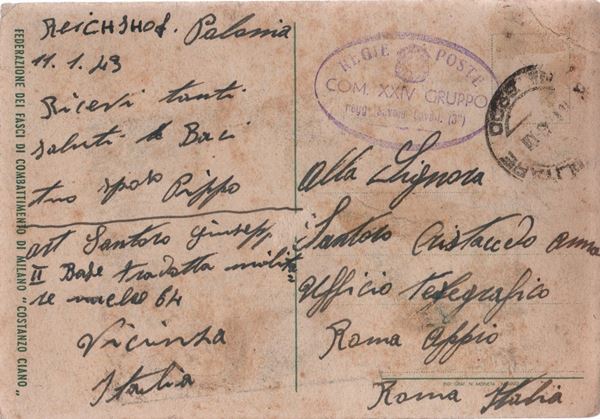 FEDERAZIONE DEI FASCI DI COMBATTIMENTO DI MILANO "COSTANZO CIANO"
Reichshof. Polonia
11.1.43
Ricevi tanti
saluti e Baci
tuo sposo Pippo
art Santoro Giusepp
II Base tradotta milita
re 64
Vicinza
Italia
REGIE POSTE
COM. XXIV GRUPPO
regg.
alla Signora
Santoro Cristaccedo anna
Ufficio telegrafico
Roma appio
Roma Italia